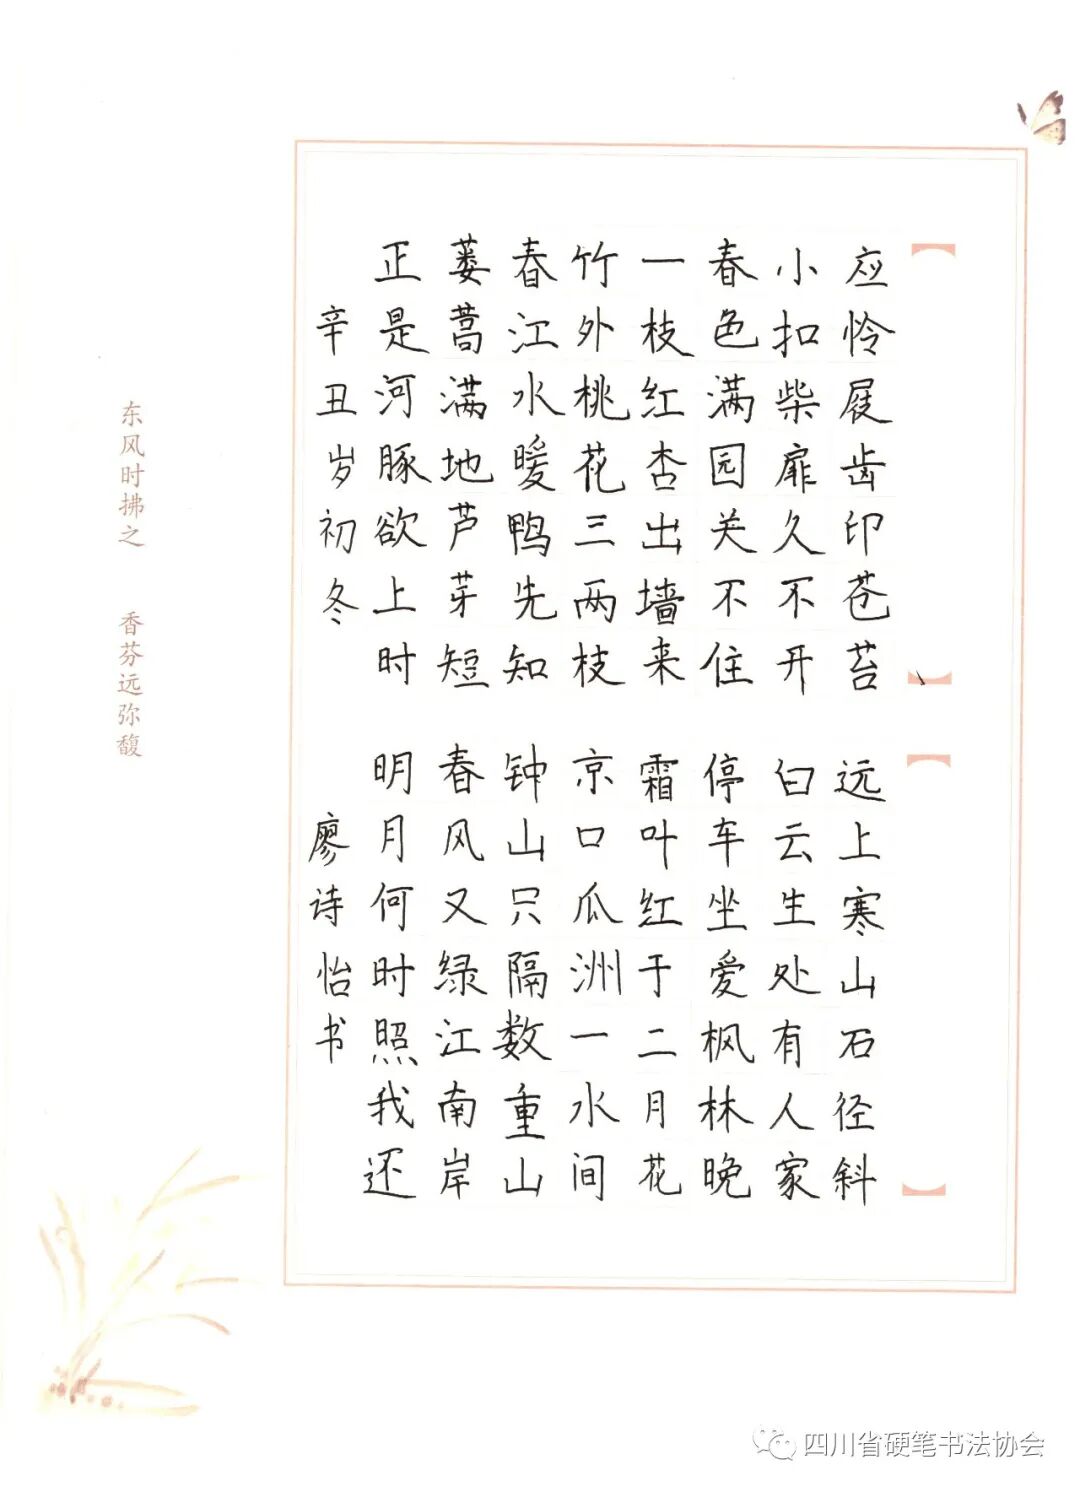 应怜屐齿印苍苔
小扣柴扉久不开
春色满园关不住
一枝红杏出墙来
竹外桃花三两枝
春江水暖鸭先知
蒌蒿满地芦芽短
正是河豚欲上时
辛丑岁初冬
远上寒山石径斜
白云生处有人家
停车坐爱枫林晚
霜叶红于二月花
京口瓜洲一水间
钟山只隔数重山
春风又绿江南岸
明月何时照我还
廖诗怡书
东风时拂之 香芬远弥馥
四川省硬笔书法协会